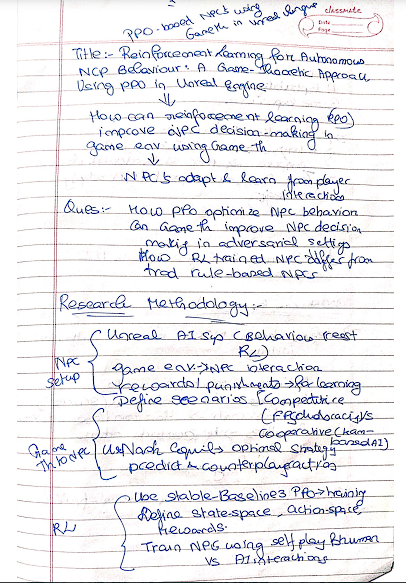 PPO-based NPCs using
GameTh in Unreal Engine
classmate
Date
Page
Title:- Reinforcement Learning for Autonomous
NCP Behaviour: A Game-Theoretic Approach
Using PPO in Unreal Engine
↓
How can reinforcement learning (PPO)
improve NPC decision-making in
game env using Game th
↓
NPC's adapt & learn from player
interactions
Ques:- How PPO optimize NPC behavior
Can Game th improve NPC decision
making in adversarial settings
How RL trained NPC differ from
trad rule-based NPCs
Research Methodology:-
NPC setup
Unreal AI sys (Behaviour
RL)
game env → NPC interaction
rewards/punishments → for learning
Game Th to NPC
Define scenarios [Competitive
vs
cooperative (team
based AI)
Use Nash Equilb optimal strategy
predict & counter player action
RL
Use Stable-Baseline3 PPO → training
Define state-space, action-space,
rewards.
Train NPC using self play & human
vs AI interactions